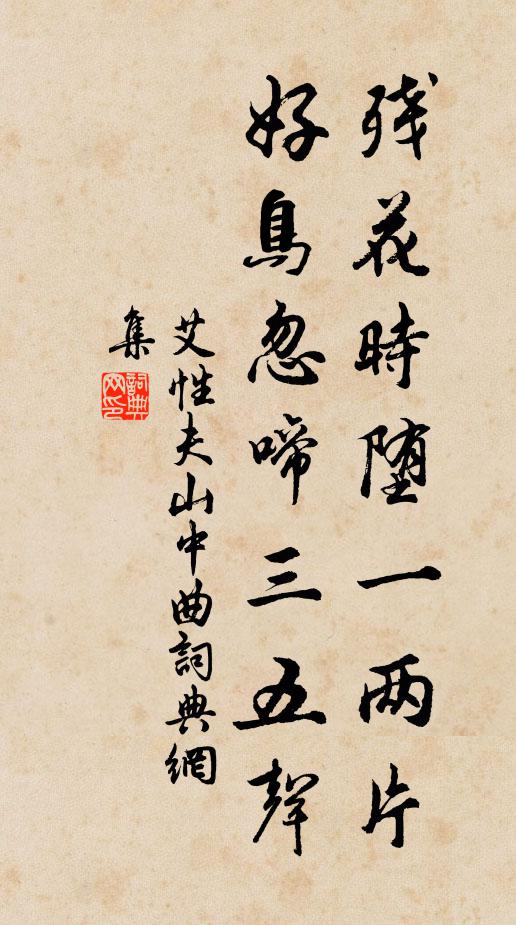 残花時堕一两片
好鳥忽啼三五聲
艾性夫山中曲詞典網
集
詞典
网印